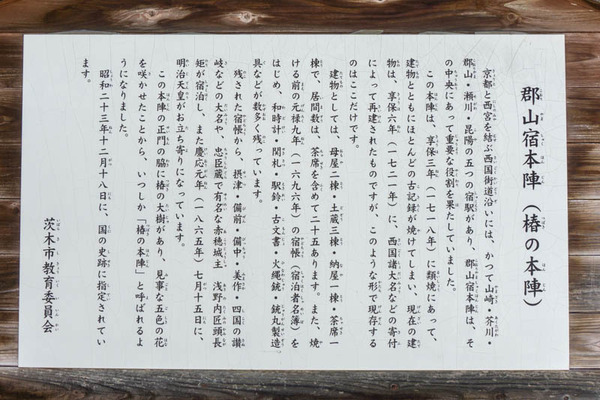 郡山宿本陣（椿の本陣）
京都と西宮を結ぶ西国街道沿いには、かつて山崎・芥川・
郡山・瀬川・昆陽の五つの宿駅があり、郡山宿本陣は、そ
の中央にあって重要な役割を果たしていました。
この本陣は、享保三年（一七一八年）に類焼にあって、
建物とともにほとんどの古記録が焼けてしまい、現在の建
物は、享保六年（一七二一年）に、西国諸大名などの寄付
によって再建されたものですが、このような形で現存する
のはここだけです。
建物としては、母屋二棟・土蔵三棟・納屋一棟・茶席一
棟で、居間数は、茶席を含めて二十五あります。また、焼
ける前の元禄九年（一六九六年）の宿帳（宿泊者名簿）を
はじめ、和時計・関札・駅鈴・古文書・火縄銃・銃丸製造
具などが数多く残っています。
残された宿帳から、摂津・備前・備中・美作・四国の讃
岐などの大名や、忠臣蔵で有名な赤穂城主　浅野内匠頭長
矩が宿泊し、また慶応元年（一八六五年）七月十五日に、
明治天皇がお立ち寄りになっています。
この本陣の正門の脇に椿の大樹があり、見事な五色の花
を咲かせたことから、いつしか「椿の本陣」と呼ばれるよ
うになりました。
昭和二十三年十二月十八日に、国の史跡に指定されてい
ます。
茨木市教育委員会